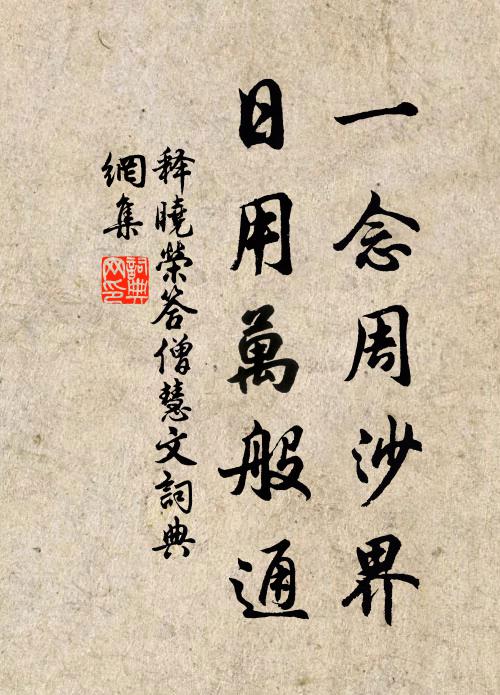 一念周沙界
日用萬般通
释曉榮答僧慧文詞典
網集
詞典網印